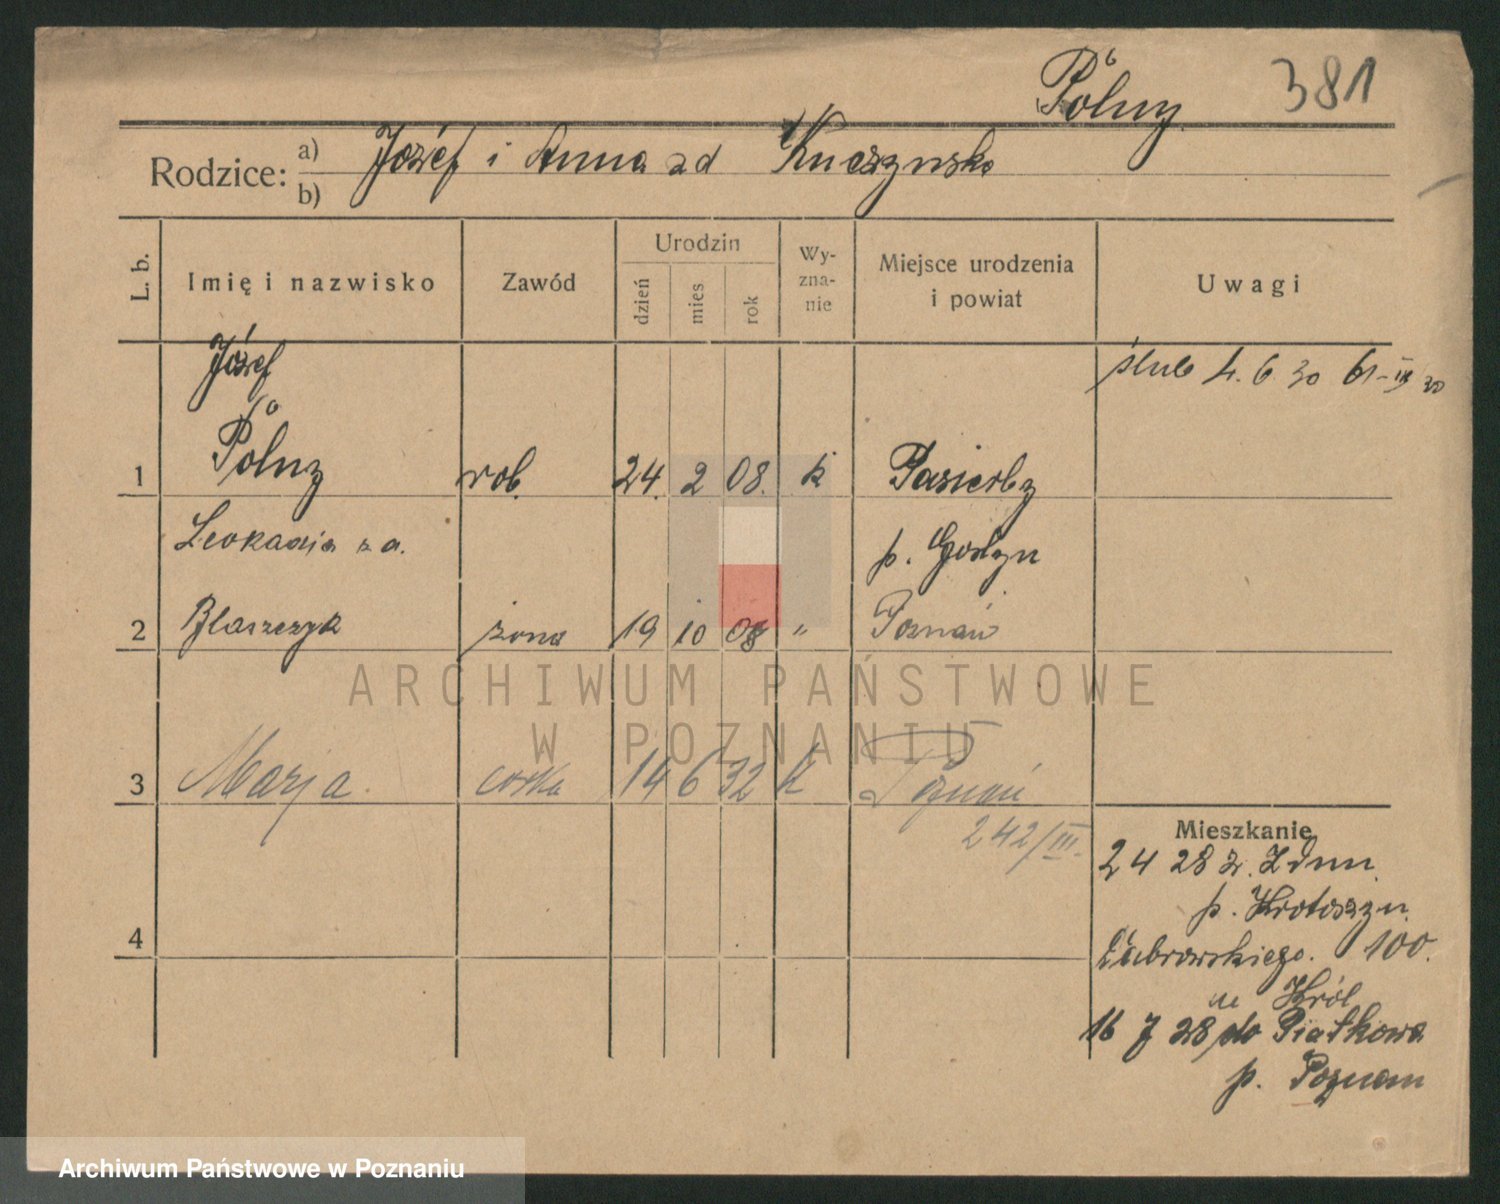 Pólny 381
Rodzice: a) Józef i Anna zd Kuczyńska
b)
L. b. Imię i nazwisko Zawód Urodzin Wy-zna-nie Miejsce urodzenia i powiat Uwagi
dzień mies rok
Józef ślub 4. 6 30
1 Pólny rob. 24. 2 08. k Pasierby
Leokadia za. p. Gostyn
2 Błaszczyk żona 19 10 08 " Poznań
ARCHIWUM PAŃSTWOWE
W POZNANIU
3 Marja corka 14 6 32 k Poznań
242/III.
Mieszkanie
24 28 z. Zdun
p. Krotoszyn
4 Dąbrowskiego. 100.
u Król
16 7 28 do Piątkowa
p. Poznań
Archiwum Państwowe w Poznaniu